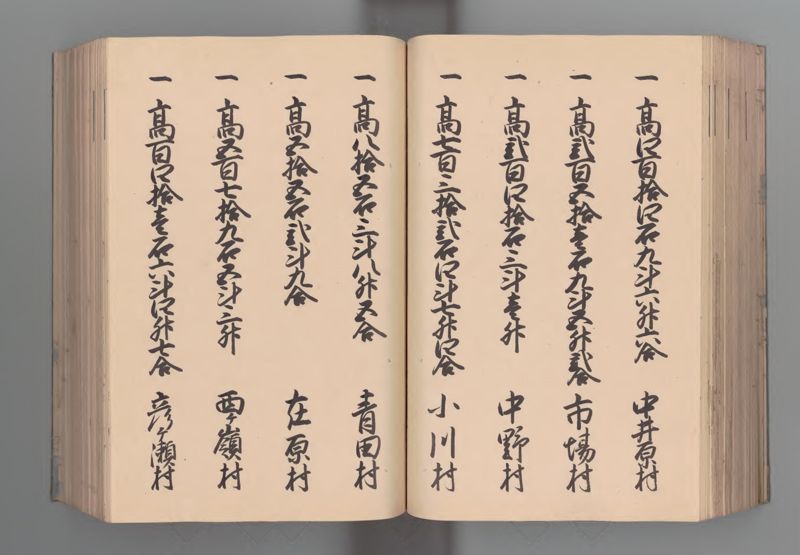 一 高四百拾四石九斗六升六合 中井原村
一 高弐百五拾壱石九斗五升弐合 市場村
一 高弐百四拾石三斗壱升 中野村
一 高七百三拾弐石四斗七升四合 小川村
一 高八拾五石三斗八升五合 青田村
一 高五拾五石弐斗九合 在原村
一 高五百七拾九石五斗三升 西ケ嶺村
一 高百四拾壱石六斗四升七合 彦ケ瀬村